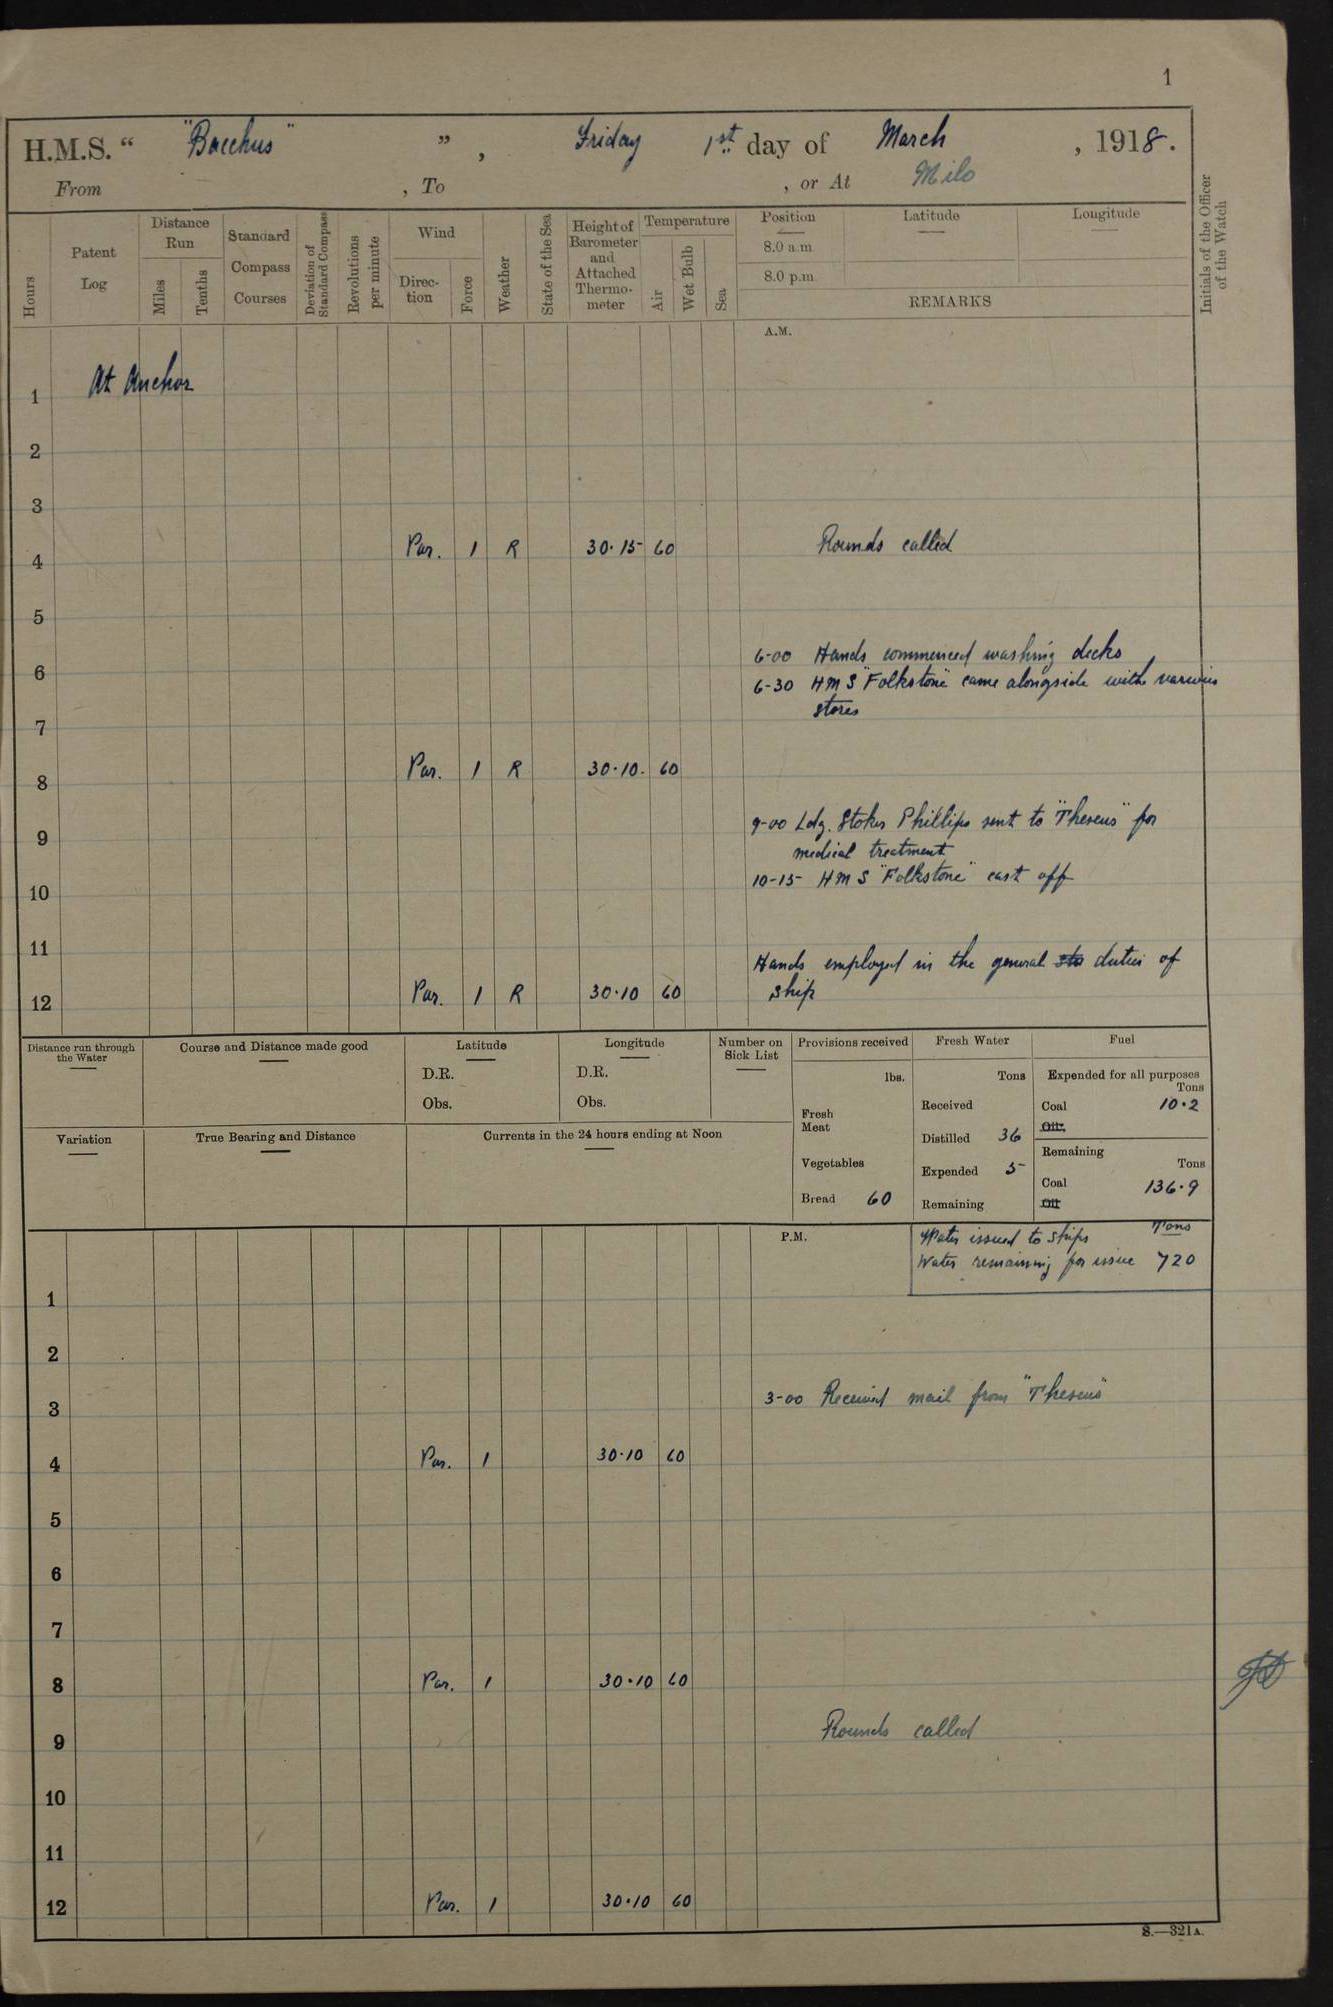 1
H.M.S. “ "Bacchus" ” , Friday 1st day of March , 1918.
From , To , or At Milo
Hours
Patent Log
Distance Run
Miles
Tenths
Standard Compass Courses
Deviation of Standard Compass
Revolutions per minute
Wind
Direc-tion
Force
Weather
State of the Sea
Height of Barometer and Attached Thermo-meter
Temperature
Air
Wet Bulb
Sea
Position Latitude Longitude
8.0 a.m.
8.0 p.m.
REMARKS
Initials of the Officer of the Watch
A.M.
At Anchor
1
2
3
4 Var. 1 R 30.15 60 Rounds called
5
6-00 Hands commenced washing decks
6
6-30 HMS "Folkstone" came alongside with various
stores
7
8 Var. 1 R 30.10. 60
9-00 Ldg. Stoker Phillips sent to "Theseus" for
9
medical treatment
10-15 HMS "Folkstone" cast off
10
11
Hands employed in the general sto duties of
ship
12 Var. 1 R 30.10 60
Distance run through the Water
Course and Distance made good
Latitude
D.R.
Obs.
Longitude
D.R.
Obs.
Number on Sick List
Provisions received
lbs.
Fresh Meat
Vegetables
Bread 60
Fresh Water
Tons
Received
Distilled 36
Expended 5
Remaining
Fuel
Expended for all purposes
Tons
Coal 10.2
Oil
Remaining
Tons
Coal 136.9
Oil
Variation
True Bearing and Distance
Currents in the 24 hours ending at Noon
P.M.
Water issued to ships Tons
Water remaining for issue 720
1
2
3-00 Received mail from "Theseus"
3
4 Var. 1 30.10 60
5
6
7
8 Var. 1 30.10 60
Rounds called
9
10
11
12 Var. 1 30.10 60
S.—321A.